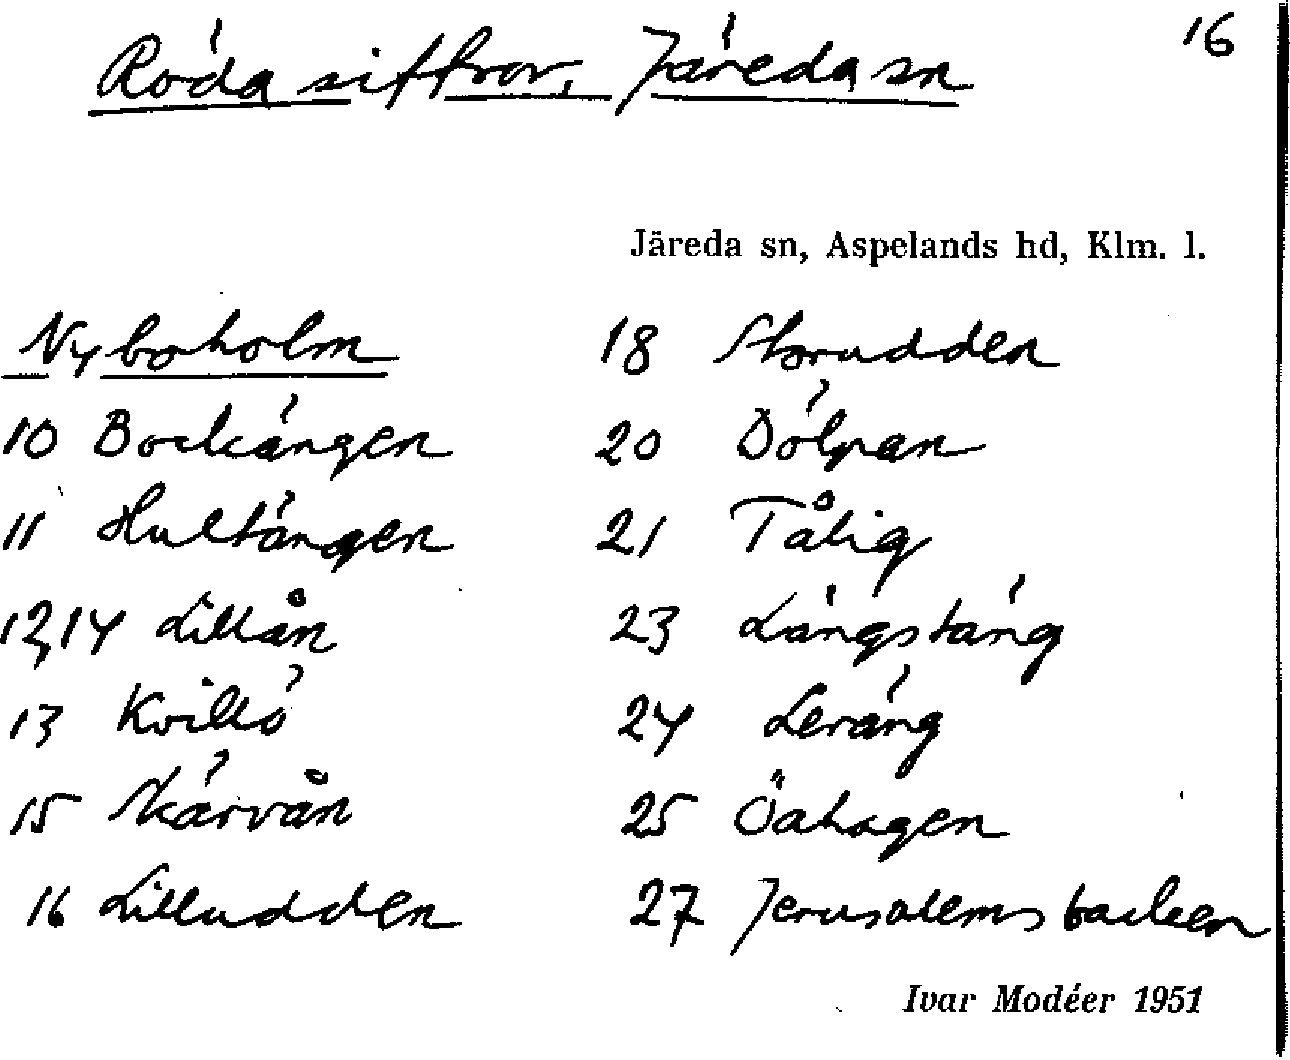 Röda siffror, Järeda sn
16
Järeda sn, Aspelands hd, Klm. l.
Nyboholm
10 Bockängen
11 Hultängen
12,14 Lillån
13 Kvillö
15 Skärvån
16 Lilludden
18 Storudden
20
21 Tålig
23 Långstäng
24 Leräng
25 Öahagen
27 Jerusalemsbacken
Ivar Modéer 1951